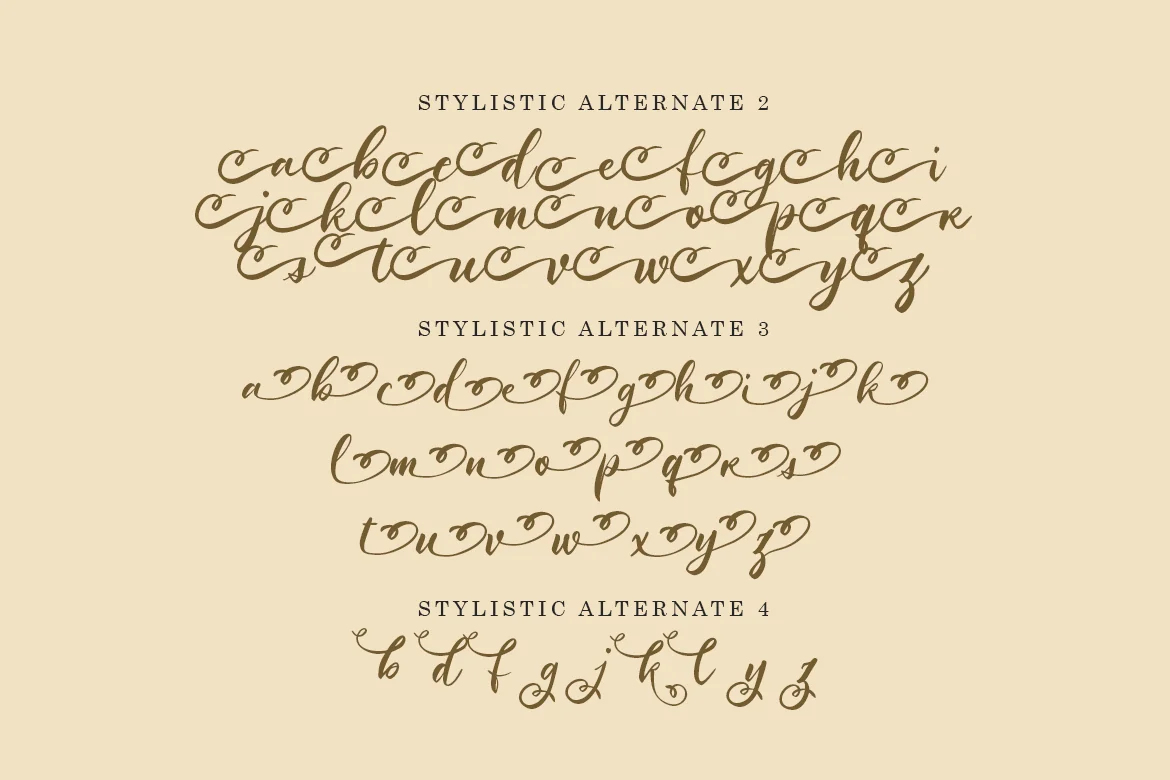 STYLISTIC ALTERNATE 2
a b c d e f g h i
j k l m n o p q r
s t u v w x y z
STYLISTIC ALTERNATE 3
a b c d e f g h i j k
l m n o p q r s
t u v w x y z
STYLISTIC ALTERNATE 4
b d f g j k l y z